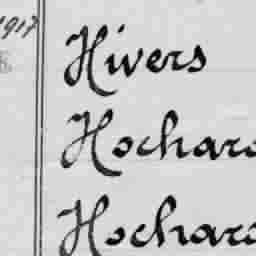 1917
Hivers
Hochar
Hochar